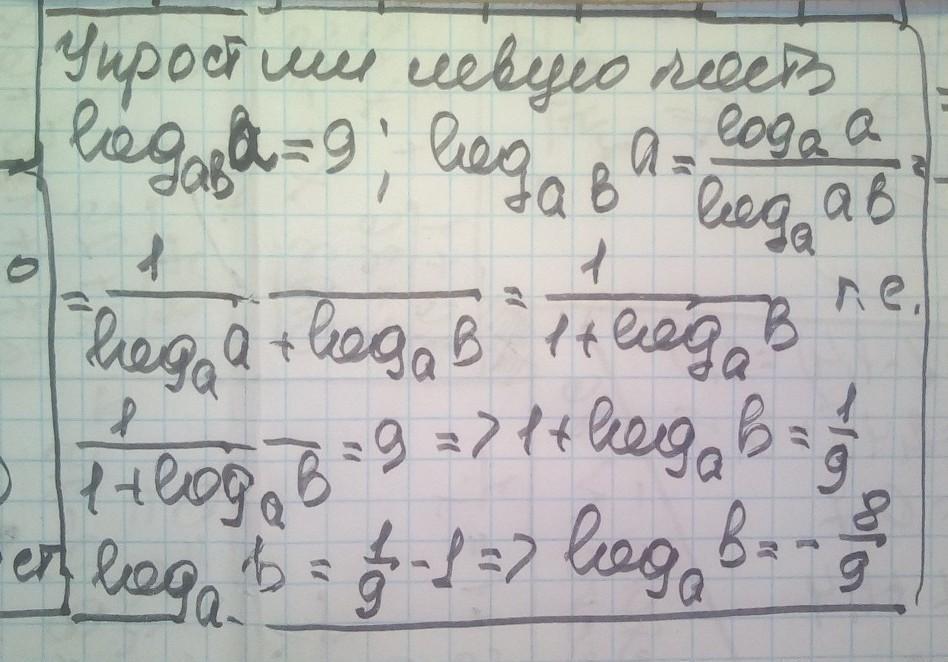 Упростим левую часть
log_{ab} a = 9; log_{ab} a = \frac{log_a a}{log_a ab} =
= \frac{1}{log_a a + log_a b} = \frac{1}{1 + log_a b} т.е.
\frac{1}{1 + log_a b} = 9 => 1 + log_a b = \frac{1}{9}
log_a b = \frac{1}{9} - 1 => log_a b = - \frac{8}{9}